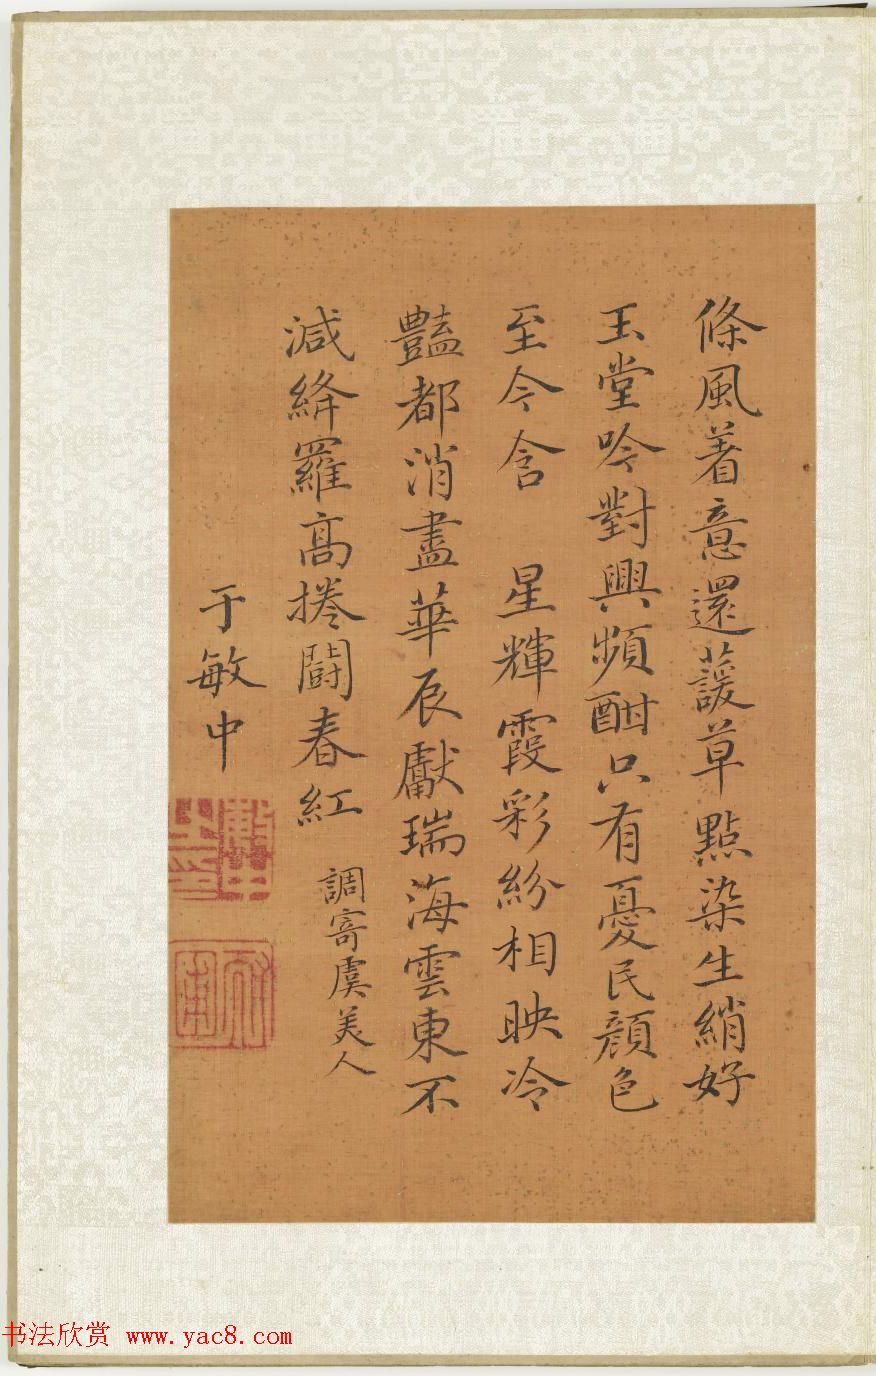 條風着意還蘐草點染生綃好
玉堂吟對興頻酣只有憂民顏色
至今含　星輝霞彩紛相映冷
豔都消盡華辰獻瑞海雲東不
減絳羅高捲鬪春紅　調寄虞美人
于敏中
书法欣赏 www.yac8.com